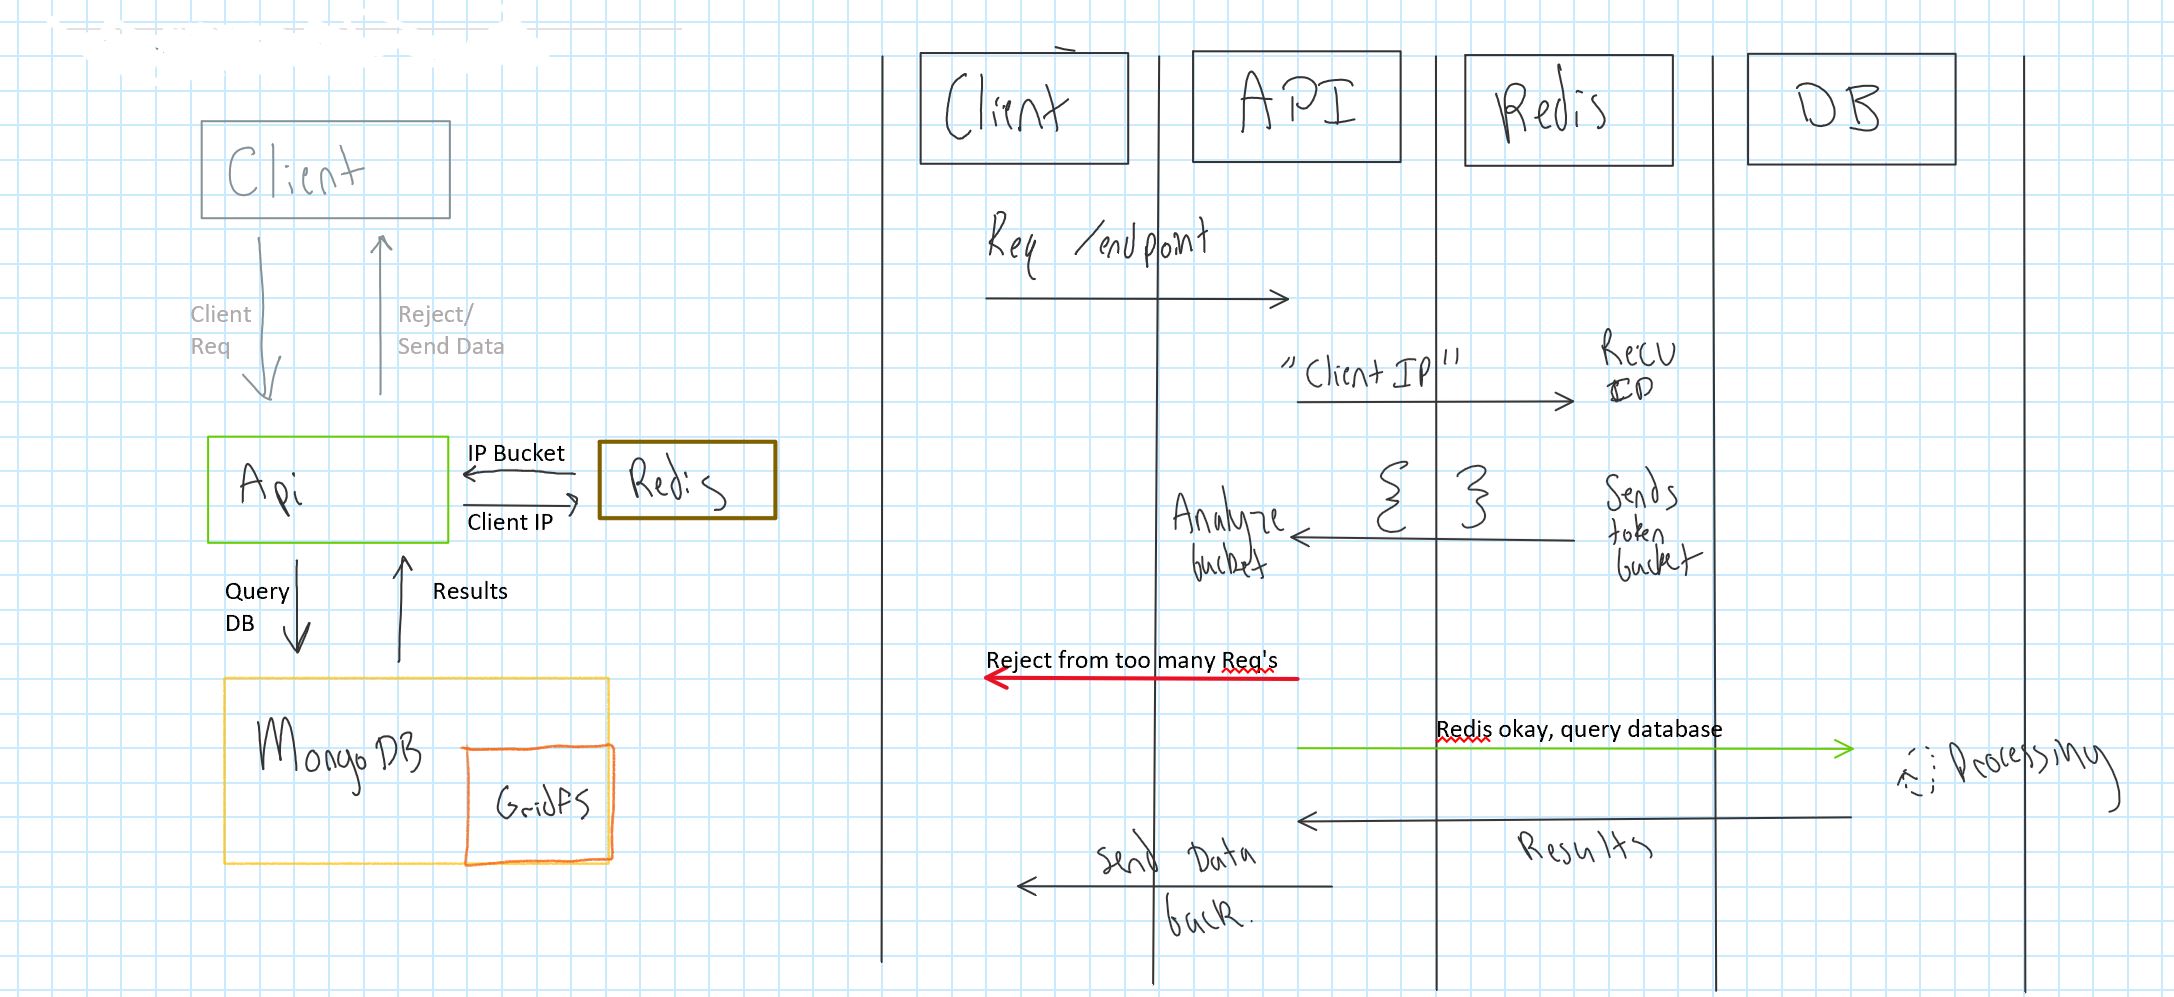 Client
Client
Req
Reject/
Send Data
Api
IP Bucket
Client IP
Redis
Query
DB
Results
MongoDB
GridFS
Client
API
Redis
DB
Req /endpoint
"Client IP"
Recv
IP
{ }
Analyze
bucket
Sends
token
bucket
Reject from too many Req's
Redis okay, query database
Processing
Results
Send Data
back.